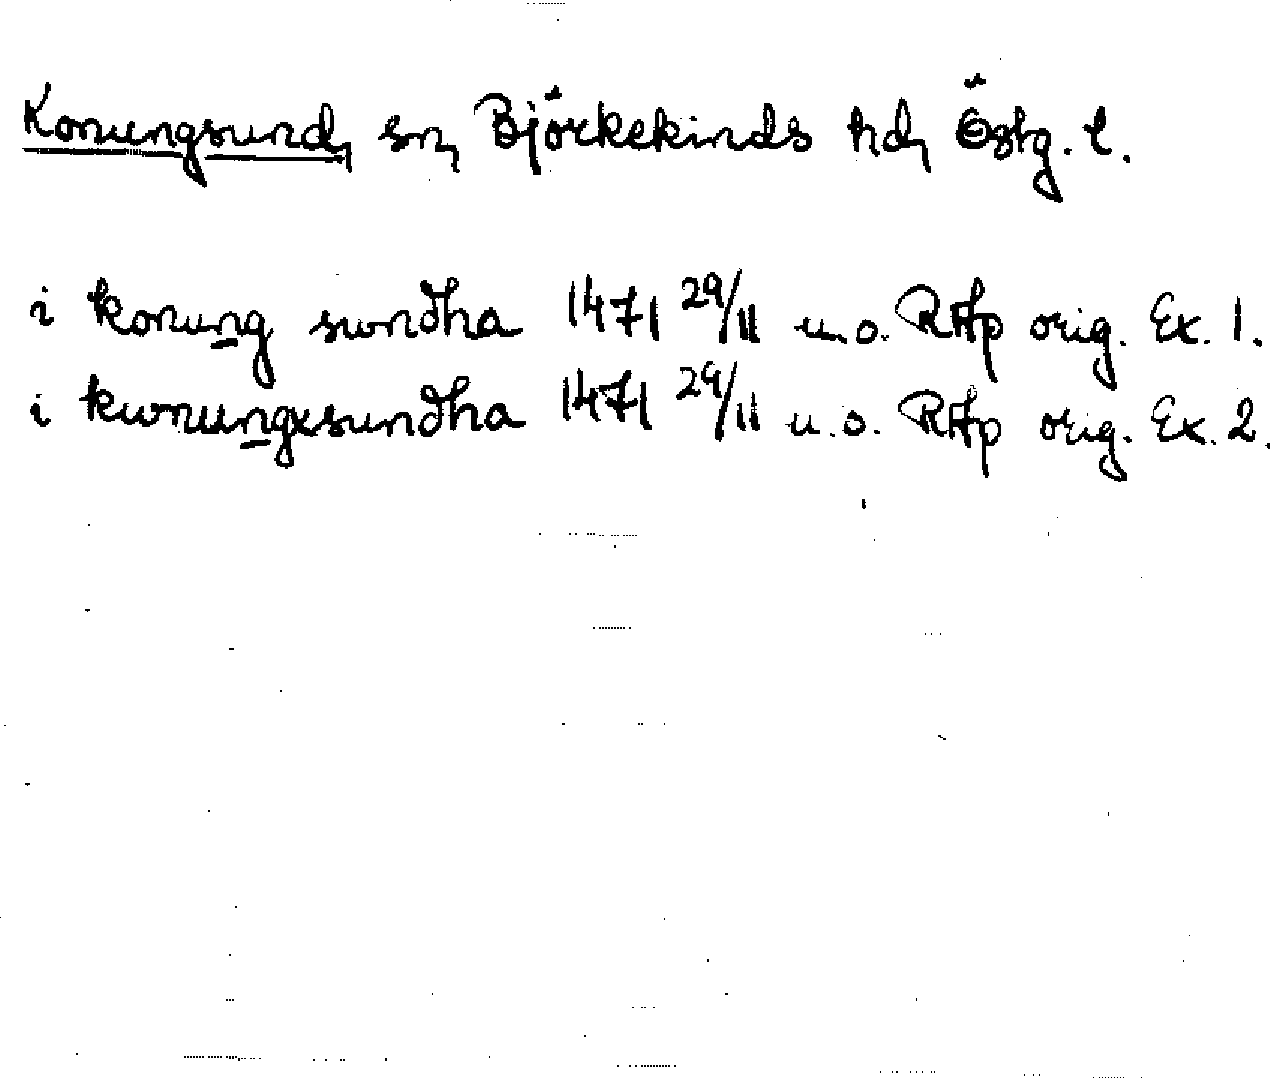 Konungsund, sn, Björkekinds hd, Östg. l.
i konung swndha 1471 29/11 u.o. RAp orig. Ex. 1.
i kwnungxsundha 1471 29/11 u.o. RAp orig. Ex. 2.